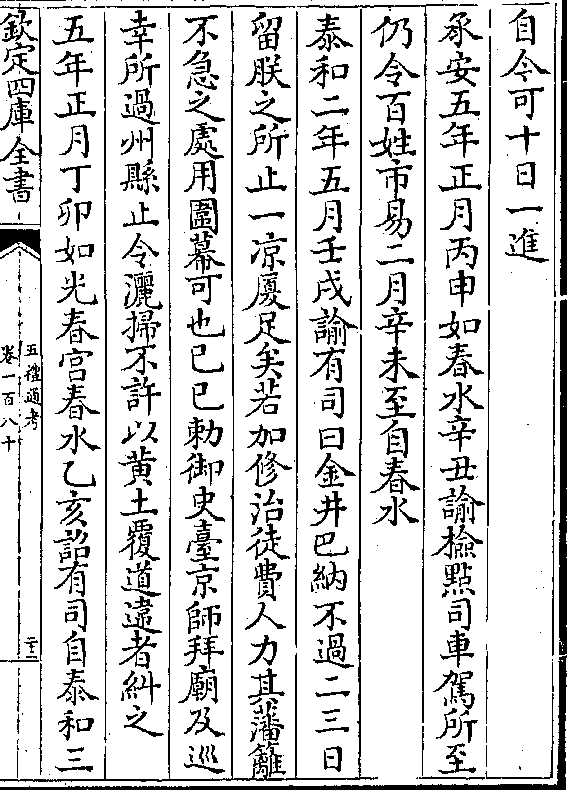 自今可十日一進
承安五年正月丙申如春水辛丑諭㸃檢司車駕所至
仍令百姓市易二月辛未至自春水
泰和二年五月壬戌諭有司曰金井巴納不過二三日
留朕之所止一凉厦足矣若加修治徒費人力其藩籬
不急之處用圍幕可也己巳勅御史臺京師拜廟及巡
幸所過州縣止令灑掃不許以黄土覆道違者糾之
五年正月丁卯如光春宫春水乙亥詔有司自泰和三
欽定四庫全書
五禮通考
卷一百八十
二十二